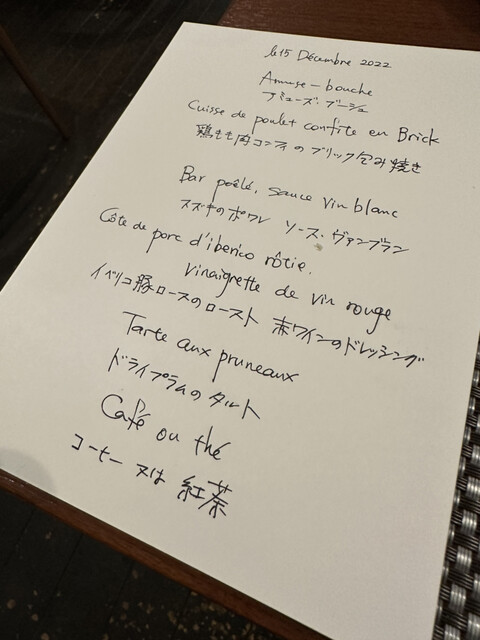 le 15 Décembre 2022
Amuse-bouche
アミューズ・ブーシュ
Cuisse de poulet confite en Brick
鶏もも肉コンフィのブリック包み焼き
Bar poêlé, sauce vin blanc
スズキのポワレ ソース・ヴァンブラン
Côte de porc d'iberico rôtie.
vinaigrette de vin rouge
イベリコ豚ロースのロースト 赤ワインのドレッシング
Tarte aux pruneaux
ドライプラムのタルト
Café ou thé
コーヒー 又は 紅茶